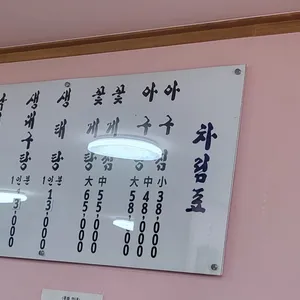 차림표
아구찜
小 38·000
中 48·000
大 58·000
아구
꽃게찜
꽃게탕
中 55·000
大 65·000
생태탕
1인분
13·000
생대구탕
1인분